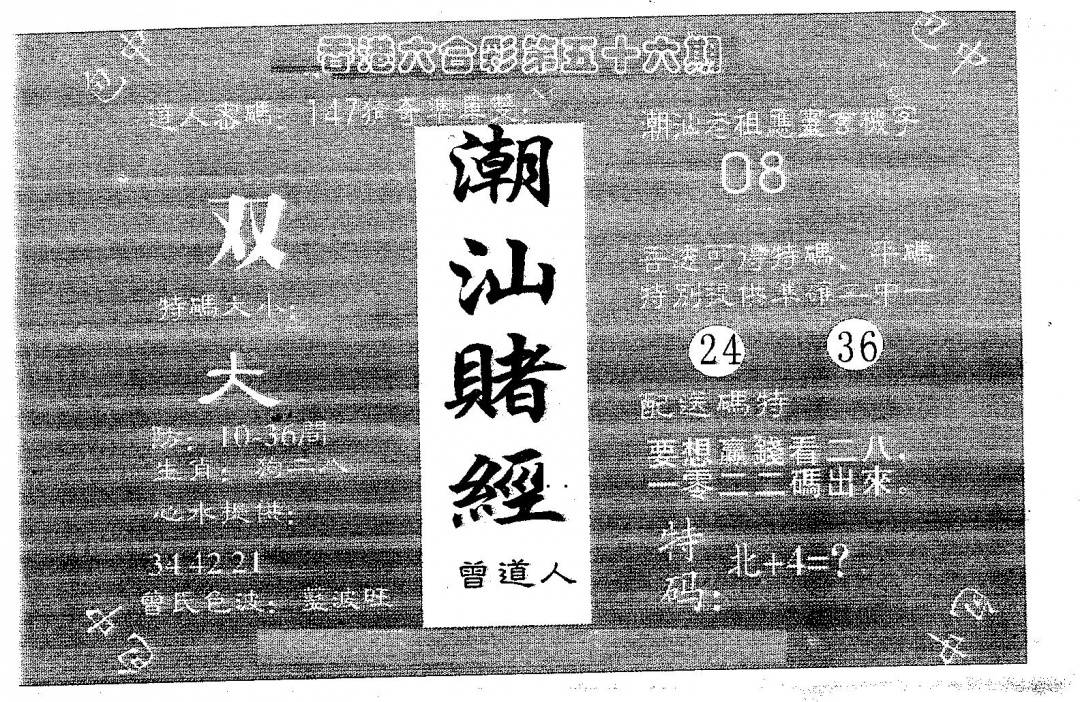 香港六合彩第五十六期
道人密碼：147
双
特碼大小：
大
防：10-36間
生肖：狗二八
心水提供：
34 42 21
曾氏色波：藍波旺
潮汕賭經
曾道人
08
特碼、平碼
特別提供準確二中一
24 36
配送碼特
要想贏錢看二八．
一零二二碼出來．
特码：
北+4=?